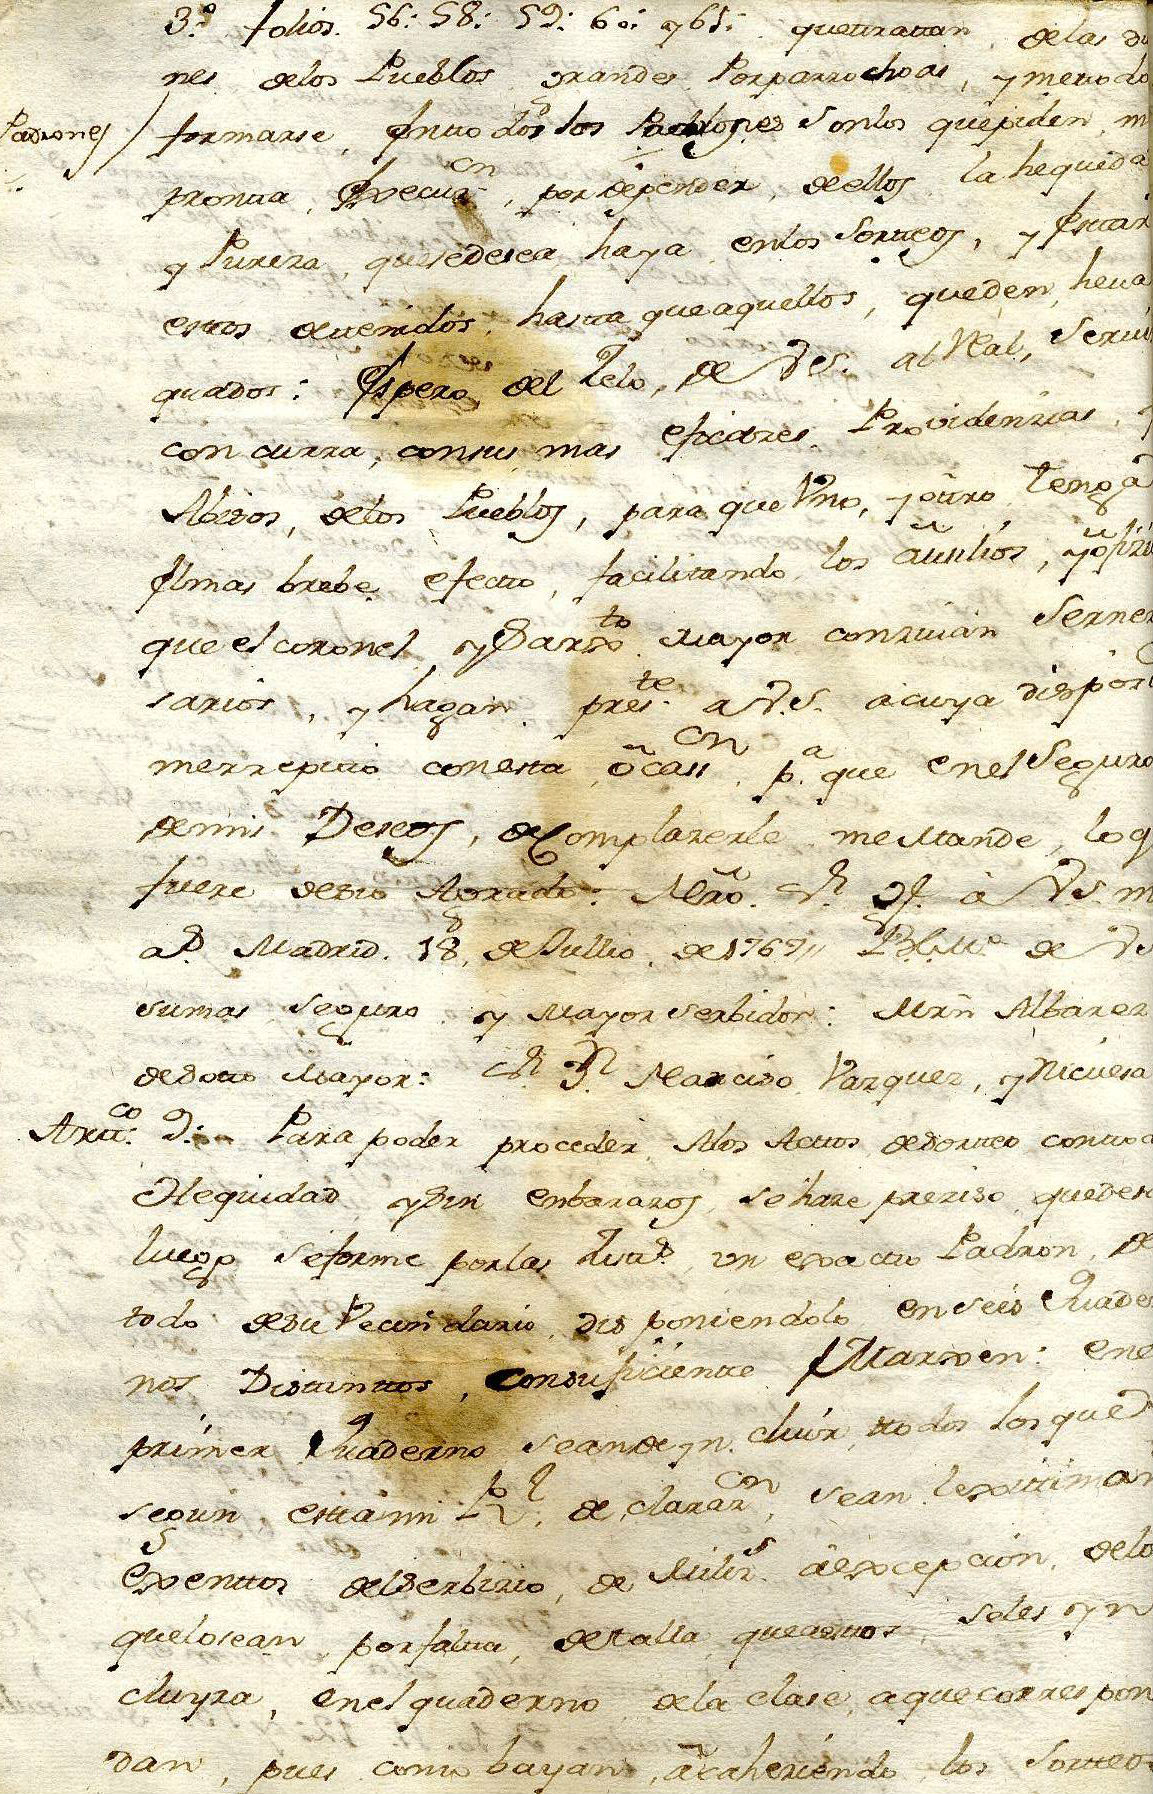 3.º folios. 56: 58: 59: 60: y 61: quettrattan, delas di
nes delos Pueblos grandes Porparrochoas, y mettodo
Padrones / formarse, todos los Padrones sonlos quepiden, m
prontta, execucn, pordepender, deellos, la hequida
y Pureza, quesedesea, haya enlos Sortteos, y estar
esttos devenidos, hastta queaquellos, queden, heva
quados: Espero del Zelo, de V.S. al Real, Servi
concurra, consus mas eficazes Providenzias, y
Abisos, delos Pueblos, para que Vno, y ottro tenga
elmas brebe efectto, facilitando los ausilios,
que el coronel, y Sargto Mayor conzivian sernez
sarios, y hagan preste a V.S. acuya dispos
merrepitto conestta ocassn, p.a que enel Seguro
demis Deseos, deComplazerle me Mande, lo q
fuere desu Agrado: Ntro. Sr. ge. â V.S. m
a.s Madrid. 18, de Jullio, de 1767,, B.L.M.o de VS
sumas Seguro y Mayor Serbidor: Mrñ Albarez
desotto Mayor: Sr. Dn Narciso Vazquez, y Nicuesa
Artt.co 9: Para poder proceder Alos Acttos desortteo conttoa
Hequidad, ysin enbarazos, sehaze preziso, quedesde
luego seforme porlas Justs. un exactto Padron, de
todo desu Vecindario, disponiendolo en seis Quader
nos Disttinttos, consuficientte Marxen: enel
primer Quaderno seande yn cluir, ttodos los que
segun esttami Rl. de claracn, sean lexittiman
exenttos delserbizio, de Milis. âexcepcion, delo
quelosean, porfaltta, detalla, queaesttos seles yn
cluyra, enel quaderno dela clase, aquecorrespon
dan, pues como bayan, âcaheziendo los Sortteos